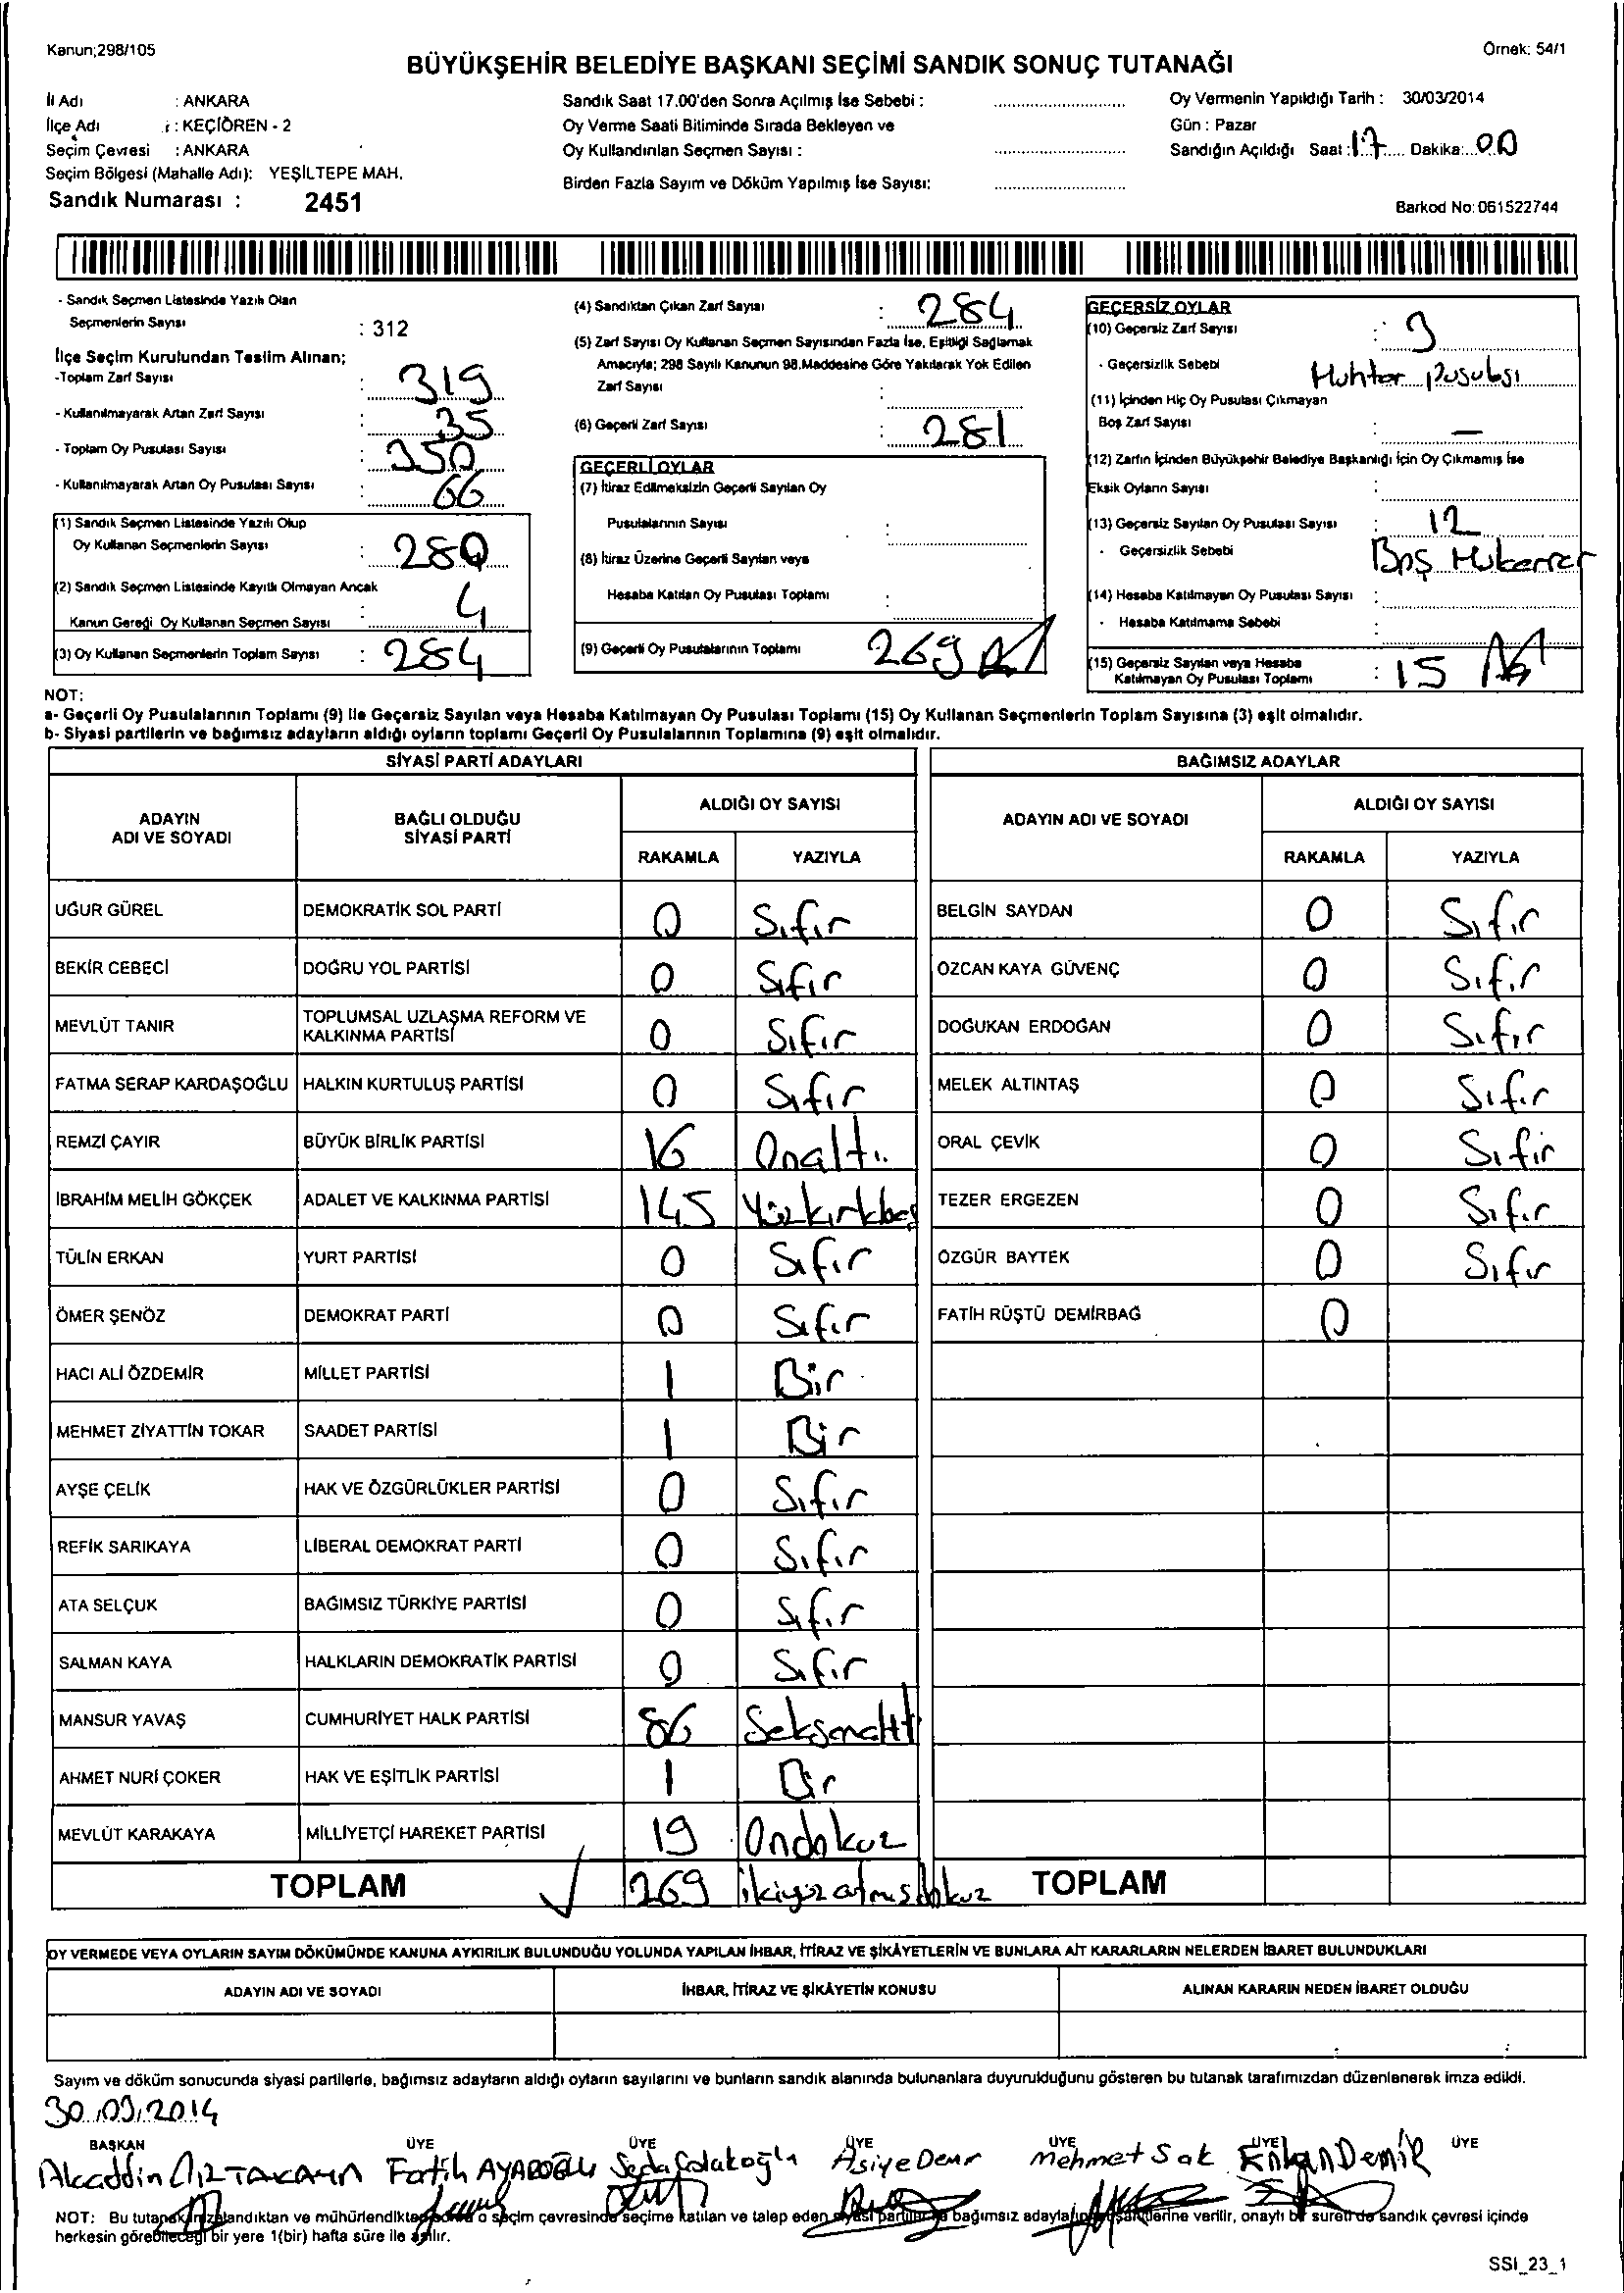 Kanun;298/105
Örnek: 54/1
BÜYÜKŞEHİR BELEDİYE BAŞKANI SEÇİMİ SANDIK SONUÇ TUTANAĞI
İl Adı : ANKARA
İlçe Adı : KEÇİÖREN - 2
Seçim Çevresi : ANKARA
Seçim Bölgesi (Mahalle Adı): YEŞİLTEPE MAH.
Sandık Numarası : 2451
Sandık Saat 17.00'den Sonra Açılmış İse Sebebi :
Oy Verme Saati Bitiminde Sırada Bekleyen ve
Oy Kullandırılan Seçmen Sayısı :
Birden Fazla Sayım ve Döküm Yapılmış İse Sayısı:
Oy Vermenin Yapıldığı Tarih : 30/03/2014
Gün : Pazar
Sandığın Açıldığı Saat : 17 Dakika: 00
Barkod No: 061522744
- Sandık Seçmen Listesinde Yazılı Olan
Seçmenlerin Sayısı : 312
İlçe Seçim Kurulundan Teslim Alınan;
-Toplam Zarf Sayısı : 319
- Kullanılmayarak Artan Zarf Sayısı : 35
- Toplam Oy Pusulası Sayısı : 350
- Kullanılmayarak Artan Oy Pusulası Sayısı : 66
(1) Sandık Seçmen Listesinde Yazılı Olup
Oy Kullanan Seçmenlerin Sayısı : 280
(2) Sandık Seçmen Listesinde Kayıtlı Olmayan Ancak
Kanun Gereği Oy Kullanan Seçmen Sayısı : 4
(3) Oy Kullanan Seçmenlerin Toplam Sayısı : 284
(4) Sandıktan Çıkan Zarf Sayısı : 284
(5) Zarf Sayısı Oy Kullanan Seçmen Sayısından Fazla İse, Eşitliği Sağlamak
Amacıyla; 298 Sayılı Kanunun 98.Maddesine Göre Yakılarak Yok Edilen
Zarf Sayısı :
(6) Geçerli Zarf Sayısı : 281
GEÇERLİ OYLAR
(7) İtiraz Edilmeksizin Geçerli Sayılan Oy
Pusulalarının Sayısı :
(8) İtiraz Üzerine Geçerli Sayılan veya
Hesaba Katılan Oy Pusulası Toplamı :
(9) Geçerli Oy Pusulalarının Toplamı 269
GEÇERSİZ OYLAR
(10) Geçersiz Zarf Sayısı : 3
- Geçersizlik Sebebi Muhtar pusulası
(11) İçinden Hiç Oy Pusulası Çıkmayan
Boş Zarf Sayısı : —
(12) Zarfın İçinden Büyükşehir Belediye Başkanlığı İçin Oy Çıkmamış İse
Eksik Oyların Sayısı :
(13) Geçersiz Sayılan Oy Pusulası Sayısı : 12
- Geçersizlik Sebebi Boş Mukerrer
(14) Hesaba Katılmayan Oy Pusulası Sayısı :
- Hesaba Katılmama Sebebi :
(15) Geçersiz Sayılan veya Hesaba
Katılmayan Oy Pusulası Toplamı : 15
NOT:
a- Geçerli Oy Pusulalarının Toplamı (9) ile Geçersiz Sayılan veya Hesaba Katılmayan Oy Pusulası Toplamı (15) Oy Kullanan Seçmenlerin Toplam Sayısına (3) eşit olmalıdır.
b- Siyasi partilerin ve bağımsız adayların aldığı oyların toplamı Geçerli Oy Pusulalarının Toplamına (9) eşit olmalıdır.
SİYASİ PARTİ ADAYLARI
ADAYIN ADI VE SOYADI
BAĞLI OLDUĞU SİYASİ PARTİ
ALDIĞI OY SAYISI
RAKAMLA YAZIYLA
UĞUR GÜREL DEMOKRATİK SOL PARTİ 0 Sıfır
BEKİR CEBECİ DOĞRU YOL PARTİSİ 0 Sıfır
MEVLÜT TANIR TOPLUMSAL UZLAŞMA REFORM VE KALKINMA PARTİSİ 0 Sıfır
FATMA SERAP KARDAŞOĞLU HALKIN KURTULUŞ PARTİSİ 0 Sıfır
REMZİ ÇAYIR BÜYÜK BİRLİK PARTİSİ 16 Onaltı
İBRAHİM MELİH GÖKÇEK ADALET VE KALKINMA PARTİSİ 145 Yüzkırkbeş
TÜLİN ERKAN YURT PARTİSİ 0 Sıfır
ÖMER ŞENÖZ DEMOKRAT PARTİ 0 Sıfır
HACI ALİ ÖZDEMİR MİLLET PARTİSİ 1 Bir
MEHMET ZİYATTİN TOKAR SAADET PARTİSİ 1 Bir
AYŞE ÇELİK HAK VE ÖZGÜRLÜKLER PARTİSİ 0 Sıfır
REFİK SARIKAYA LİBERAL DEMOKRAT PARTİ 0 Sıfır
ATA SELÇUK BAĞIMSIZ TÜRKİYE PARTİSİ 0 Sıfır
SALMAN KAYA HALKLARIN DEMOKRATİK PARTİSİ 0 Sıfır
MANSUR YAVAŞ CUMHURİYET HALK PARTİSİ 86 Seksenaltı
AHMET NURİ ÇOKER HAK VE EŞİTLİK PARTİSİ 1 Bir
MEVLÜT KARAKAYA MİLLİYETÇİ HAREKET PARTİSİ 19 Ondokuz
TOPLAM 269 ikiyüzatmışdokuz
BAĞIMSIZ ADAYLAR
ADAYIN ADI VE SOYADI
ALDIĞI OY SAYISI
RAKAMLA YAZIYLA
BELGİN SAYDAN 0 Sıfır
ÖZCAN KAYA GÜVENÇ 0 Sıfır
DOĞUKAN ERDOĞAN 0 Sıfır
MELEK ALTINTAŞ 0 Sıfır
ORAL ÇEVİK 0 Sıfır
TEZER ERGEZEN 0 Sıfır
ÖZGÜR BAYTEK 0 Sıfır
FATİH RÜŞTÜ DEMİRBAĞ 0
TOPLAM
OY VERMEDE VEYA OYLARIN SAYIM DÖKÜMÜNDE KANUNA AYKIRILIK BULUNDUĞU YOLUNDA YAPILAN İHBAR, İTİRAZ VE ŞİKÂYETLERİN VE BUNLARA AİT KARARLARIN NELERDEN İBARET BULUNDUKLARI
ADAYIN ADI VE SOYADI İHBAR, İTİRAZ VE ŞİKÂYETİN KONUSU ALINAN KARARIN NEDEN İBARET OLDUĞU
Sayım ve döküm sonucunda siyasi partilerle, bağımsız adayların aldığı oyların sayılarını ve bunların sandık alanında bulunanlara duyurulduğunu gösteren bu tutanak tarafımızdan düzenlenerek imza edildi.
30.03.2014
BAŞKAN ÜYE ÜYE ÜYE ÜYE ÜYE ÜYE
Fatih Seda Çolakoğlu Asiye Demir Mehmet Sak Erkan Demir
NOT: Bu tutanak imzalandıktan ve mühürlendikten sonra o seçim çevresinde seçime katılan ve talep eden siyasi partiler ve bağımsız adayların müşahitlerine verilir, onaylı bir sureti de sandık çevresi içinde
herkesin görebileceği bir yere 1(bir) hafta süre ile asılır.
SSI_23_1